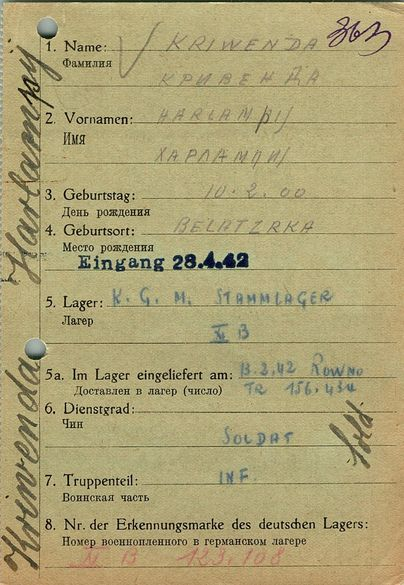 363
1. Name: KRIWENDA
Фамилия
КРИВЕНДА
2. Vornamen: HARLAMPIJ
Имя
ХАРЛАМПИЙ
3. Geburtstag: 10.2.00
День рождения
4. Geburtsort: BELATZRKA
Место рождения
Eingang 28.4.42
5. Lager: K. G. M. STAMMLAGER
Лагер
XI B
5a. Im Lager eingeliefert am: 13.2.42 ROWNO
Доставлен в лагер (число) TR 156.434
6. Dienstgrad:
Чин
SOLDAT
7. Truppenteil: INF.
Воинская часть
8. Nr. der Erkennungsmarke des deutschen Lagers:
Номер военнопленного в германском лагере
XI B 123.108
Kriwenda Harlampij
Sold